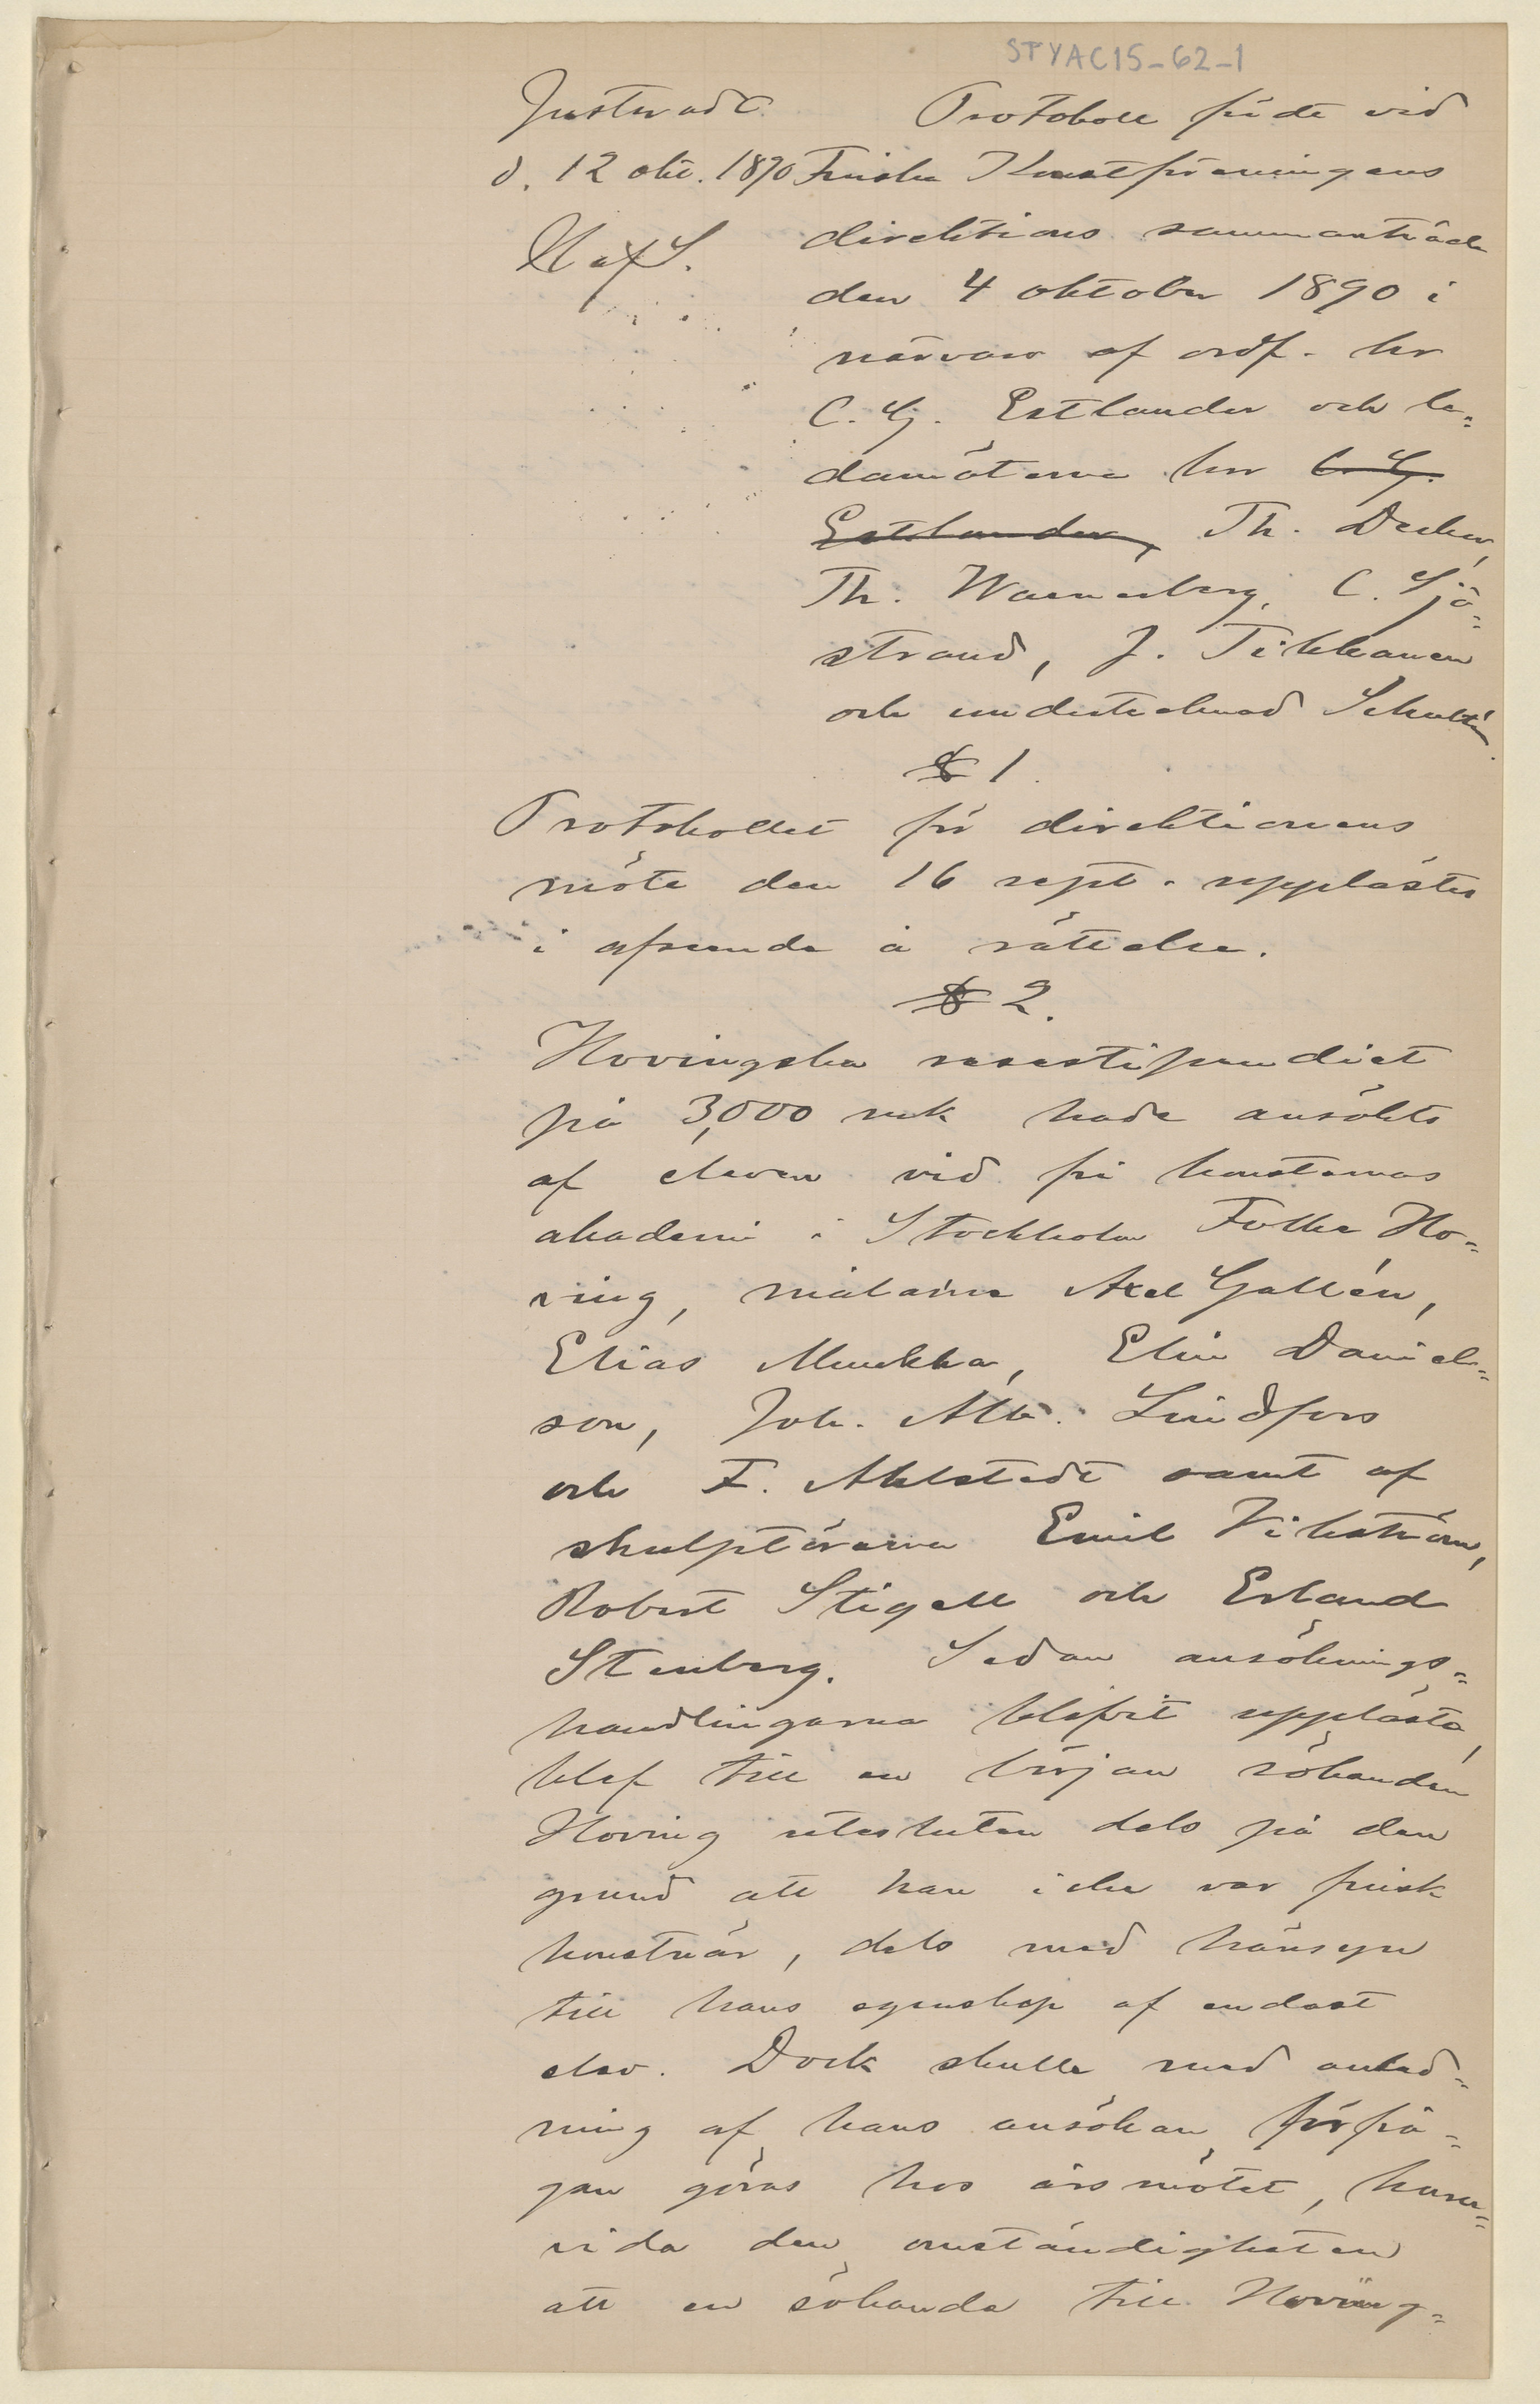 STYAC15-62-1
Justerad t.
d. 12 okt. 1890
N af S.
Protokoll fördt vid
Finska Konstföreningens
direktions sammanträde
den 4 oktober 1890 i
närvaro af ordf. hr
C. G. Estlander och le=
damöterna hrr C. G.
Estlander, Th. Decker,
Th. Waenerberg, C. Sjö=
strand, J. Tikkanen
och undertecknad Schultén.
§ 1.
Protokollet för direktionens
möte den 16 sept. upplästes
i afseende å rättelse.
§ 2.
Hovingska resestipendiet
på 3,000 mk hade ansökts
af eleven vid fri konsternas
akademi i Stockholm Folke Ho=
ving, målarne Axel Gallén,
Elias Muukka, Elin Daniel=
son, Joh. Alb. Lindfors
och F. Ahlstedt samt af
skulptörerna Emil Vikström,
Robert Stigell och Erland
Stenberg. Sedan ansöknings=
handlingarna blifvit upplästa,
blef till en början sökanden
Hoving utesluten dels på den
grund att han icke var finsk
konstnär, dels med hänsyn
till hans egenskap af endast
elev. Dock skulle med anled=
ning af hans ansökan förfrå=
gan göras hos årsmötet, huru=
vida den omständigheten
att en sökande till Hoving=